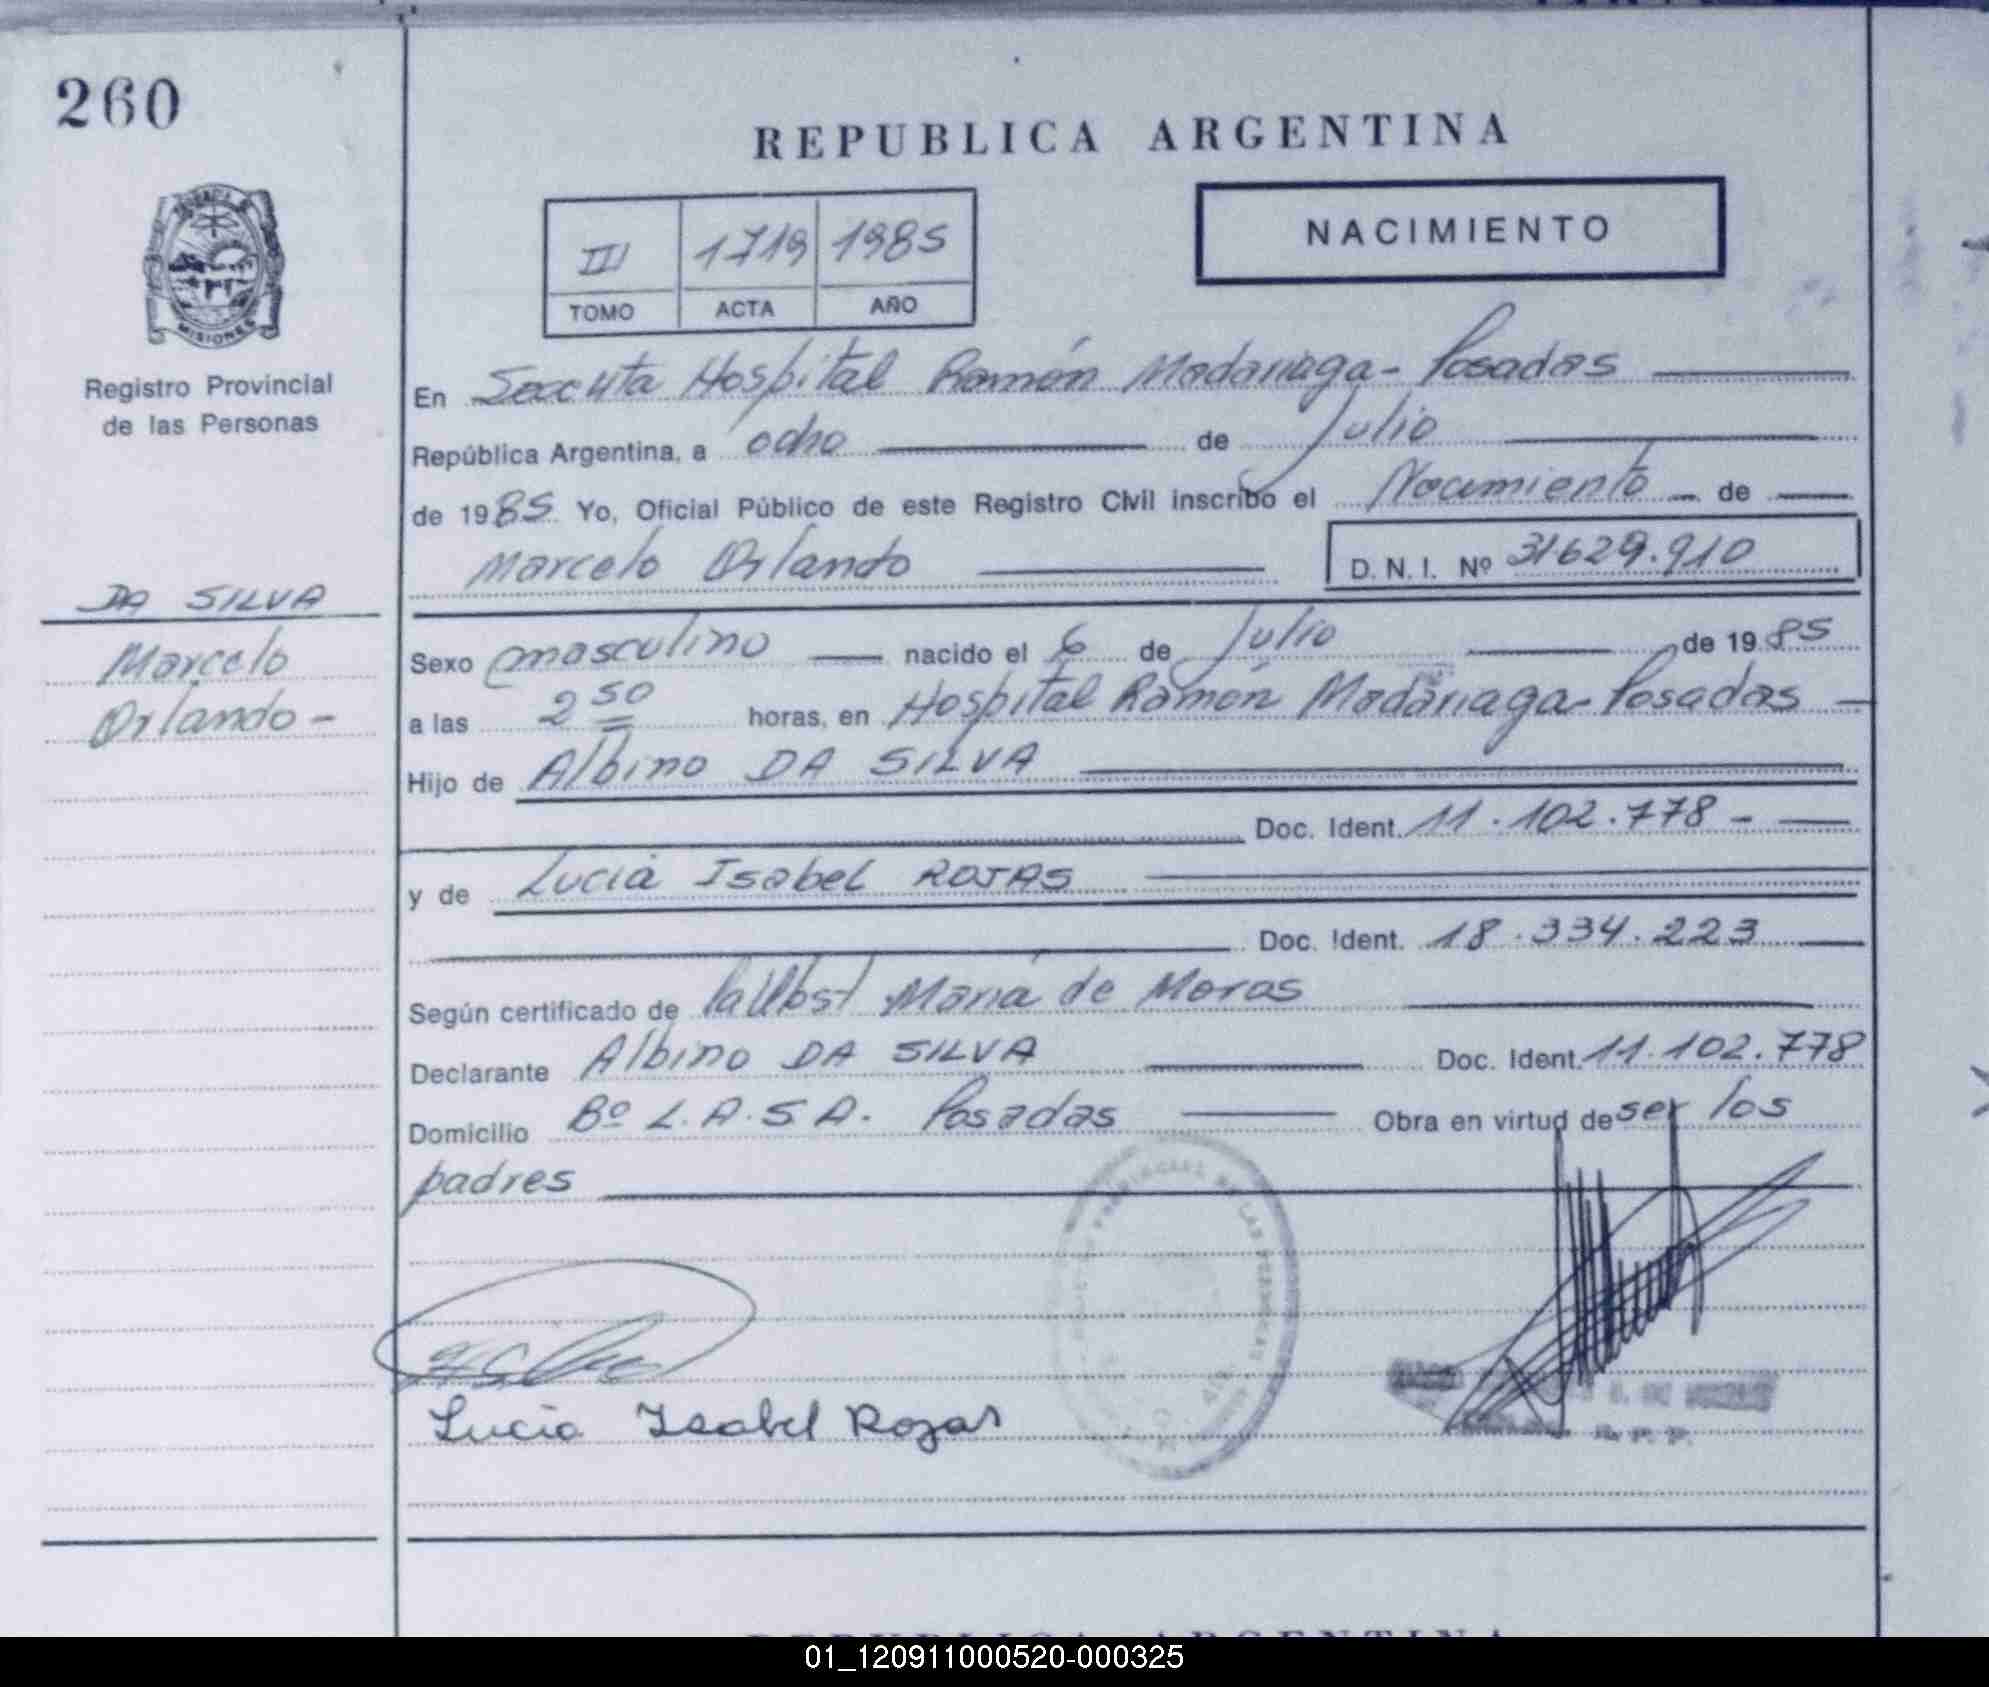 260
REPUBLICA ARGENTINA
PROVINCIA DE
MISIONES
Registro Provincial
de las Personas
III 1719 1985
TOMO ACTA AÑO
NACIMIENTO
En Hospital Ramón Madariaga - Posadas
República Argentina, a ocho de Julio
de 1985 Yo, Oficial Público de este Registro Civil inscribo el Nacimiento de
Marcelo Orlando D. N. I. Nº 31.629.910
DA SILVA
Marcelo
Orlando -
Sexo masculino nacido el 6 de Julio de 1985
a las 2 50 horas, en Hospital Ramón Madariaga - Posadas
Hijo de Albino DA SILVA
Doc. Ident. 11.102.778 -
y de Lucia Isabel ROJAS
Doc. Ident. 18.334.223
Según certificado de María de Moras
Declarante Albino DA SILVA Doc. Ident. 11.102.778
Domicilio Bº L.A.S.A. Posadas Obra en virtud de ser los
padres
Lucia Isabel Rojas
R. P. P.
REPUBLICA ARGENTINA
01_120911000520-000325